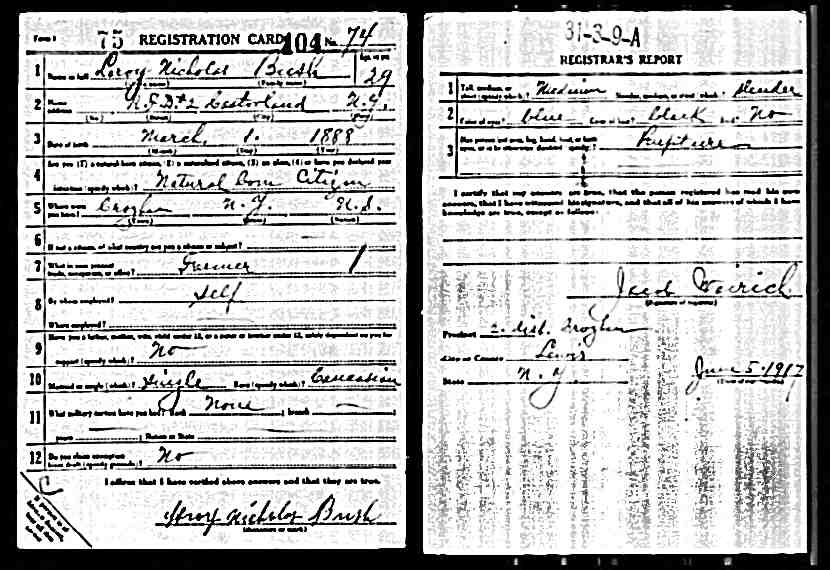 Form 1 75 REGISTRATION CARD 104 No. 74
1 Name in full Leroy Nicholas Bush Age, in yrs 29
(Given name) (Family name)
2 Home address R.F.D.#2 Castorland N.Y.
(No.) (Street) (City) (State)
3 Date of birth March 1. 1888
(Month) (Day) (Year)
4 Are you (1) a natural-born citizen, (2) a naturalized citizen, (3) an alien, (4) or have you declared your
intention (specify which)? Natural born Citizen
5 Where were you born? Croghan N.Y. U.S.
(Town) (State) (Nation)
6 If not a citizen, of what country are you a citizen or subject?
7 What is your present trade, occupation, or office? Farmer
8 By whom employed? Self
Where employed?
9 Have you a father, mother, wife, child under 12, or a sister or brother under 12, solely dependent on you for
support (specify which)? No
10 Married or single (which)? Single Race (specify which)? Caucasian
11 What military service have you had? Rank None ; branch
years ; Nation or State
12 Do you claim exemption from draft (specify grounds)? No
I affirm that I have verified above answers and that they are true.
Leroy Nicholas Bush
(Signature or mark)
31-3-9-A
REGISTRAR'S REPORT
1 Tall, medium, or short (specify which)? Medium Slender, medium, or stout (which)? Slender
2 Color of eyes? blue Color of hair? black Bald? No
3 Has person lost arm, leg, hand, foot, or both eyes, or is he otherwise disabled (specify)? Rupture
I certify that my answers are true, that the person registered has read his own
answers, that I have witnessed his signature, and that all of his answers of which I have
knowledge are true, except as follows:
Jacob Weirich
(Signature of registrar)
Precinct 2. dist. Croghan
City or County Lewis
State N.Y. June 5-1917
(Date of registration)